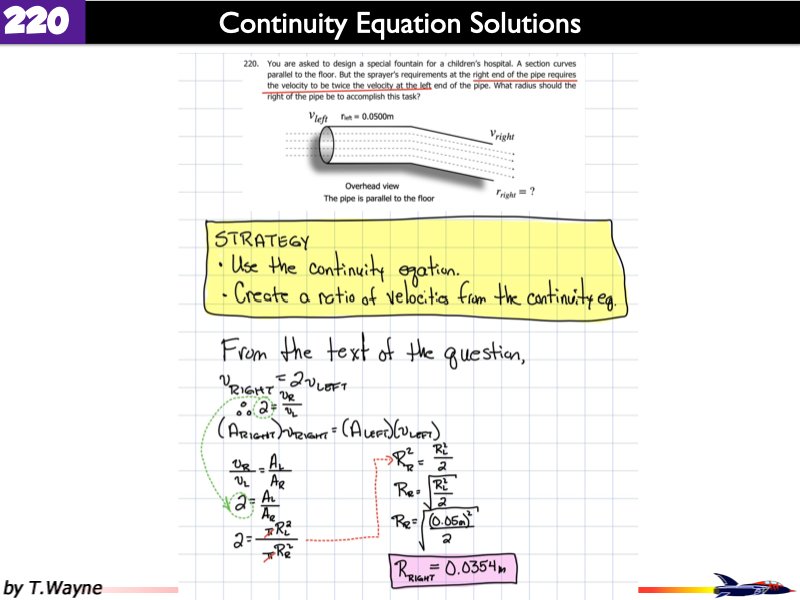 220
Continuity Equation Solutions
220. You are asked to design a special fountain for a children's hospital. A section curves
parallel to the floor. But the sprayer's requirements at the right end of the pipe requires
the velocity to be twice the velocity at the left end of the pipe. What radius should the
right of the pipe be to accomplish this task?
v_left r_left = 0.0500m
v_right
Overhead view
The pipe is parallel to the floor
r_right = ?
STRATEGY
• Use the continuity eqation.
• Create a ratio of velocities from the continuity eq.
From the text of the question,
v_RIGHT = 2v_LEFT
∴ 2 = v_R/v_L
(A_RIGHT)v_RIGHT = (A_LEFT)(v_LEFT)
v_R/v_L = A_L/A_R
2 = A_L/A_R
2 = πR_L²/πR_R²
R_R² = R_L²/2
R_R = √(R_L²/2)
R_R = √((0.05m)²/2)
R_RIGHT = 0.0354m
by T.Wayne